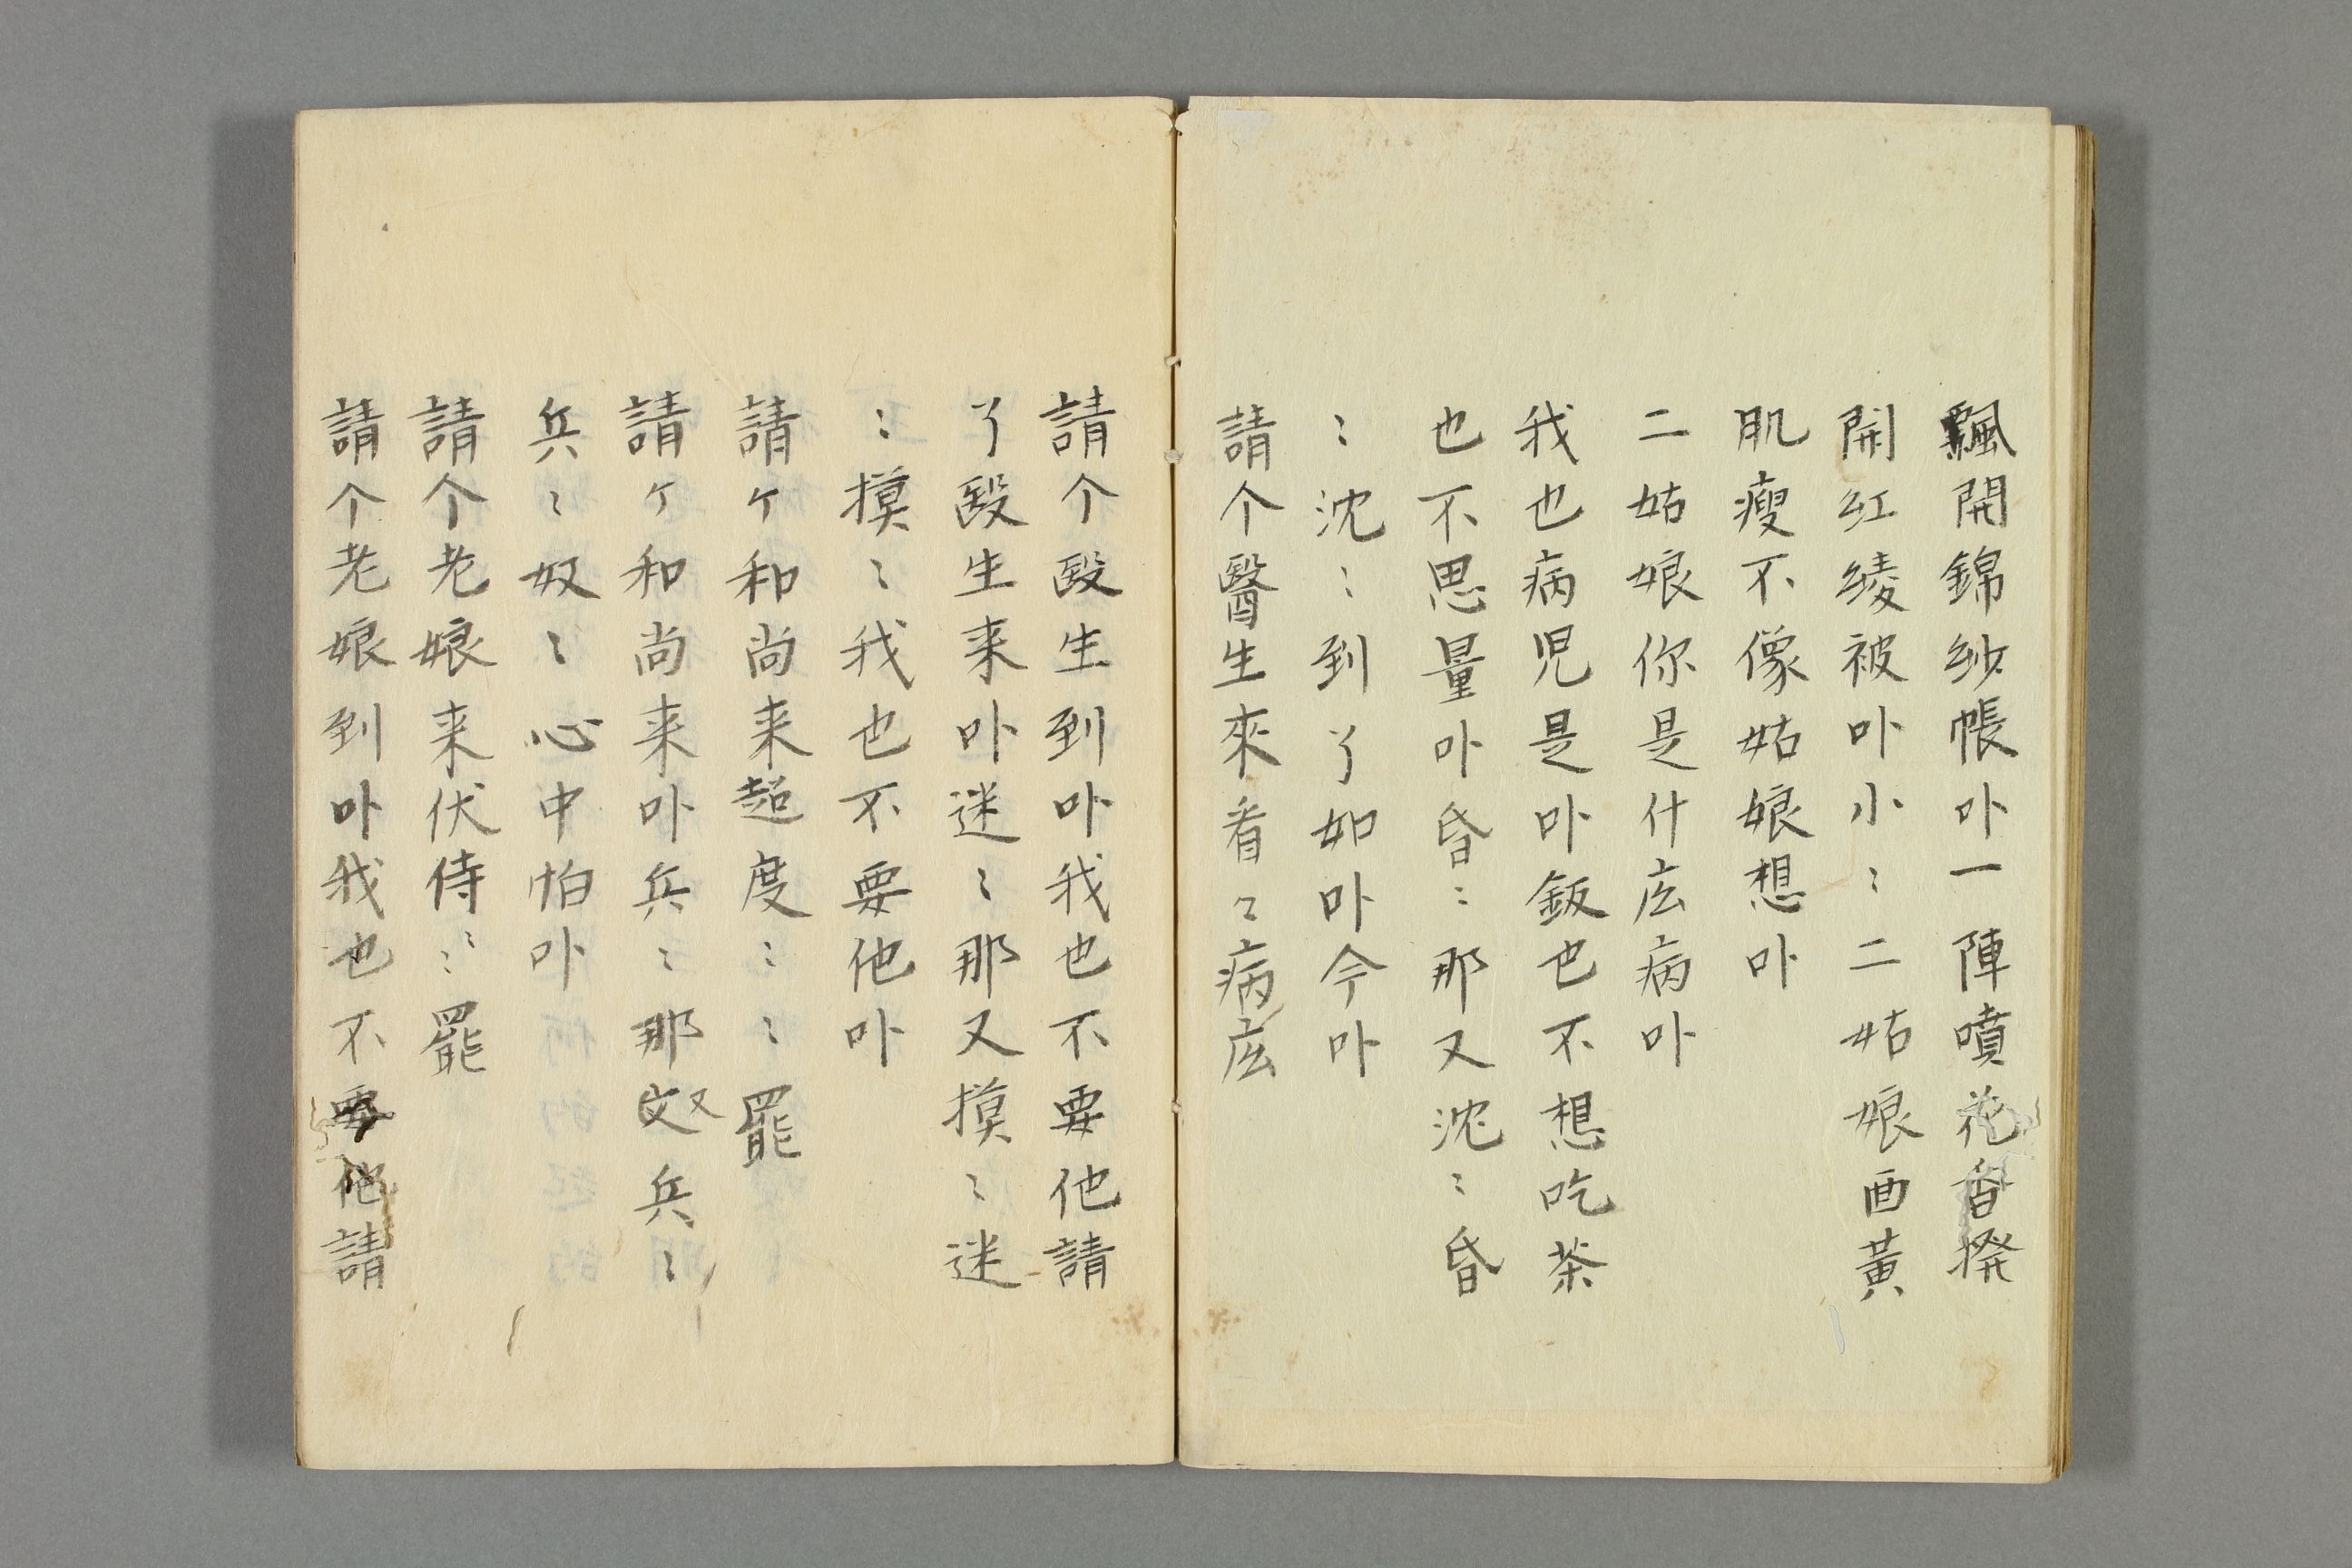 飄開錦紗帳卟一陣噴花香撥
開紅綾被卟小〻二姑娘面黃
肌瘦不像姑娘想卟
二姑娘你是什庅病卟
我也病児是卟飯也不想吃茶
也不思量卟昏〻那又沈〻昏
〻沈〻到了如卟今卟
請个醫生來看〻病庅
請个毉生到卟我也不要他請
了毉生来卟迷〻那又摸〻迷
〻摸〻我也不要他卟
請ケ和尚来超度〻〻罷
請ケ和尚来卟兵〻那又兵〻
兵〻奴〻心中怕卟
請个老娘来伏侍〻〻罷
請个老娘到卟我也不要他請